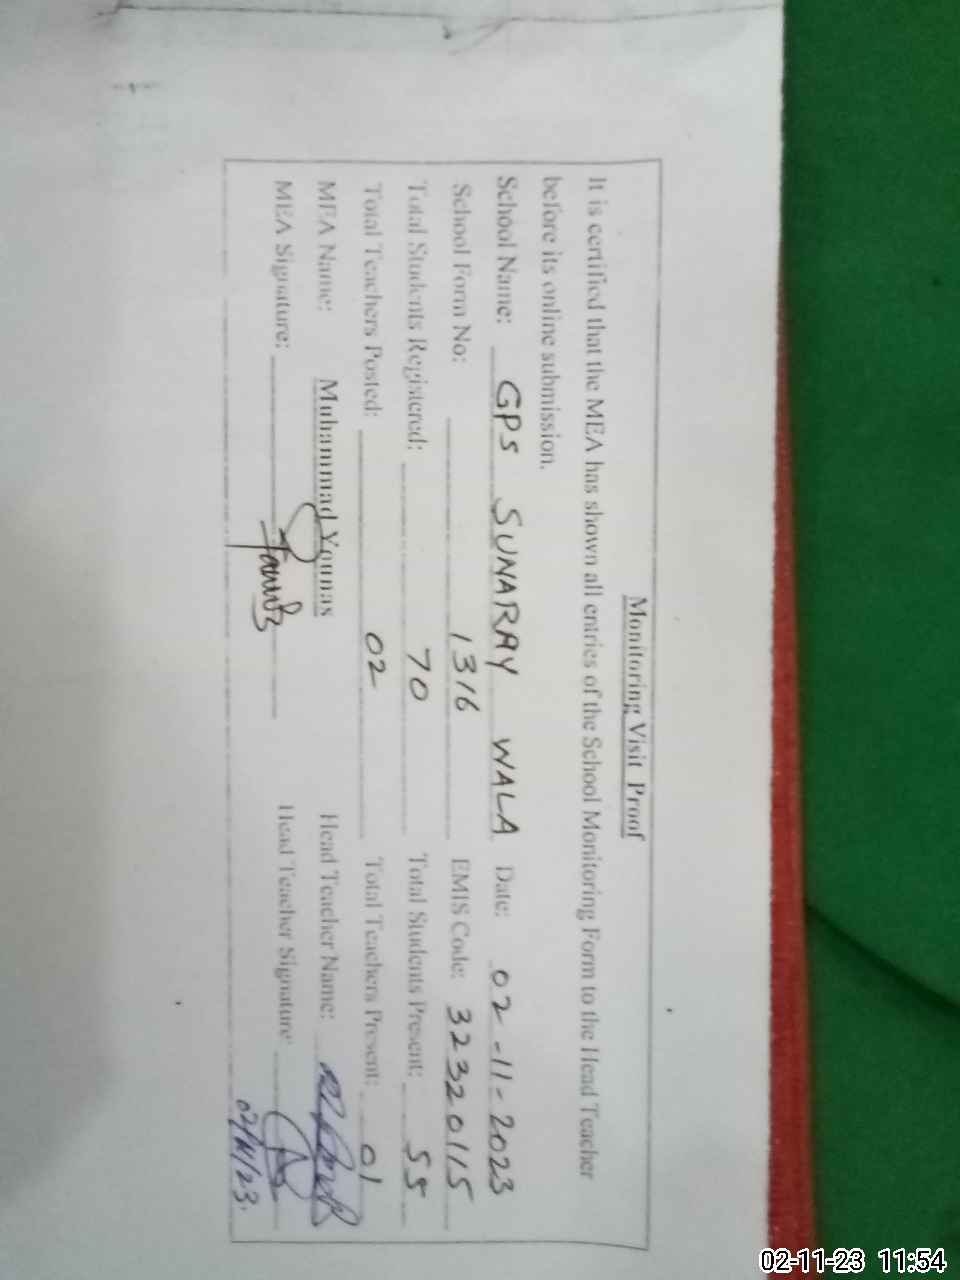 Monitoring Visit Proof
It is certified that the MEA has shown all entries of the School Monitoring Form to the Head Teacher
before its online submission.
School Name: GPS SUNARAY WALA Date: 02-11-2023
School Form No: 1316 EMIS Code: 32320115
Total Students Registered: 70 Total Students Present: 55
Total Teachers Posted: 02 Total Teachers Present: 01
MEA Name: Muhammad Younas Head Teacher Name:
MEA Signature: Head Teacher Signature:
02/11/23
02-11-23 11:54